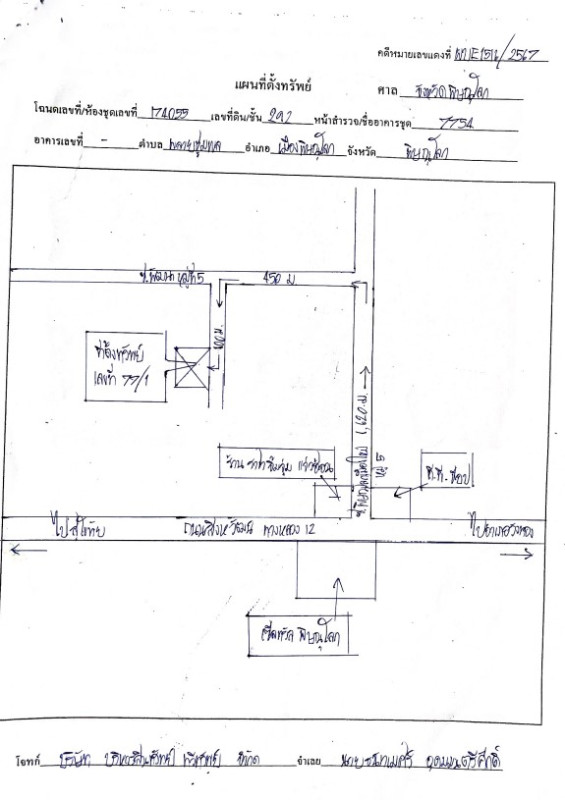 คดีหมายเลขแดงที่ ผบE1516/2567
แผนที่ตั้งทรัพย์
ศาล จังหวัดพิษณุโลก
โฉนดเลขที่/ห้องชุดเลขที่ 74055 เลขที่ดิน/ชั้น 292 หน้าสำรวจ/ชื่ออาคารชุด 7754
อาคารเลขที่ - ตำบล พลายชุมพล อำเภอ เมืองพิษณุโลก จังหวัด พิษณุโลก
ซ.พัฒนา หมู่ที่ 5
450 ม.
100 ม.
ที่ตั้งทรัพย์
เลขที่ 77/1
1,620 ม.
หมู่ 5
ร้าน
ที.ที. ช็อป
ไปสุโขทัย
ถนนสิงหวัฒน์ ทางหลวง 12
ไปอำเภอวังทอง
พิษณุโลก
โจทก์ บริษัท บริหารสินทรัพย์ จำกัด
จำเลย